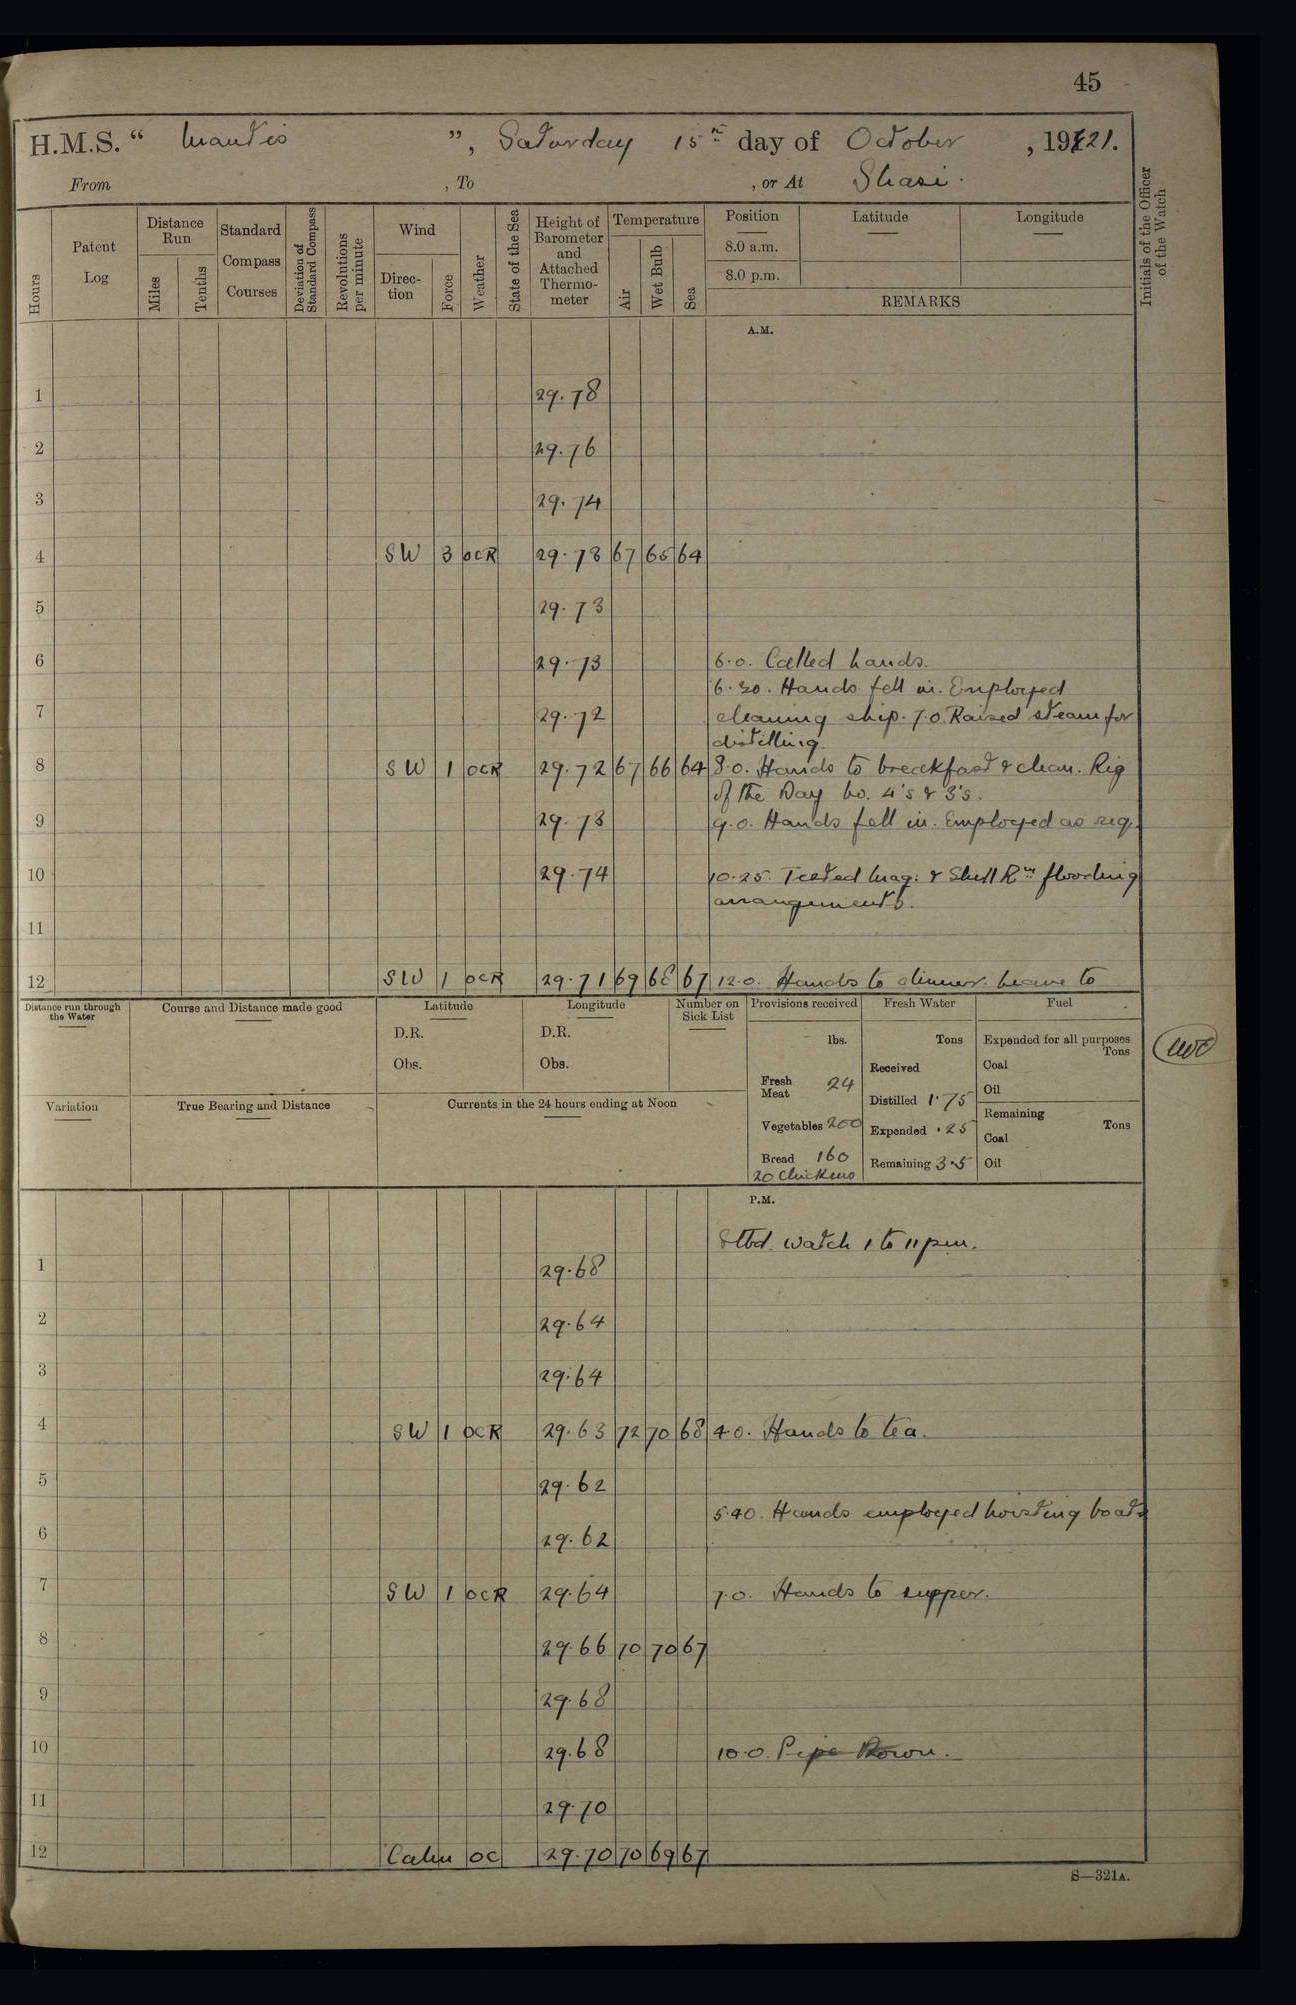 45
H.M.S. “ Mantis ”, Saturday 15th day of October, 1921.
From , To , or At Shasi.
Hours
Patent Log
Distance Run
Miles
Tenths
Standard Compass Courses
Deviation of Standard Compass
Revolutions per minute
Wind
Direction
Force
Weather
State of the Sea
Height of Barometer and Attached Thermometer
Temperature
Air
Wet Bulb
Sea
Position
8.0 a.m.
8.0 p.m.
Latitude
Longitude
REMARKS
Initials of the Officer of the Watch
A.M.
1 29.78
2 29.76
3 29.74
4 SW 3 OCR 29.78 67 65 64
5 29.73
6 29.73 6.0. Called hands.
6.30. Hands fell in. Employed
7 29.72 cleaning ship. 7.0. Raised steam for
distilling.
8 SW 1 OCR 29.72 67 66 64 8.0. Hands to breakfast & clean. Rig
of the Day No. 4's & 3's.
9 29.73 9.0. Hands fell in. Employed as req.
10 29.74 10.25. Tested Mag: & Shell Rm flooding
arrangements.
11
12 SW 1 OCR 29.71 69 68 67 12.0. Hands to dinner. Leave to
Distance run through the Water
Course and Distance made good
Latitude
D.R.
Obs.
Longitude
D.R.
Obs.
Number on Sick List
Provisions received
lbs.
Fresh Meat 24
Vegetables 200
Bread 160
20 Chickens
Fresh Water
Tons
Received
Distilled 1.75
Expended .25
Remaining 3.5
Fuel
Expended for all purposes
Tons
Coal
Oil
Remaining
Tons
Coal
Oil
Variation
True Bearing and Distance
Currents in the 24 hours ending at Noon
P.M.
Stbd. watch 1 to 11 pm.
1 29.68
2 29.64
3 29.64
4 SW 1 OCR 29.63 72 70 68 4.0. Hands to tea.
5 29.62
5.40. Hands employed hoisting boats
6 29.62
7 SW 1 OCR 29.64 7.0. Hands to supper.
8 29.66 70 70 67
9 29.68
10 29.68 10.0. Pipe Down.
11 29.70
12 Calm OC 29.70 70 69 67
S—321A.